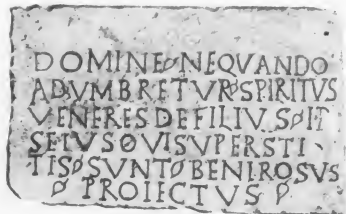 DOMINE NE QUANDO
ADVMBRETVR SPIRITVS
VENERES DE FILIVS IT
SEIVS QVI SVPERSTI
TIS SVNT BENIROSVS
PROIECTVS